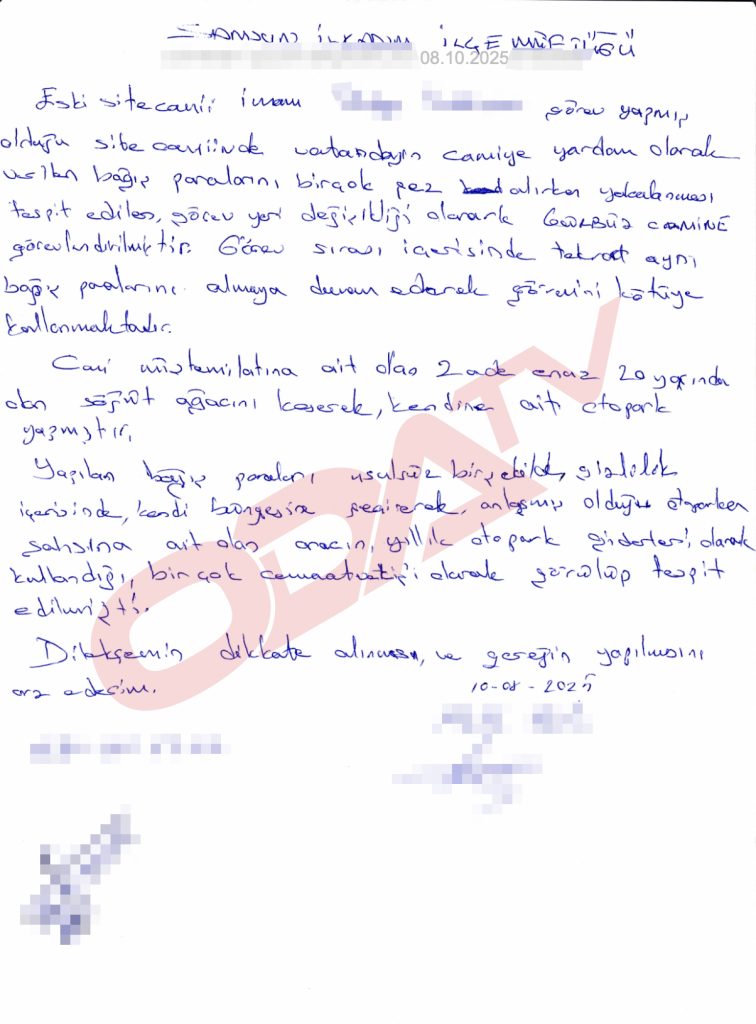 SAMSUN İLKADIM İLÇE MÜFTÜĞÜ
08.10.2025
Eski site camii imam görev yapmış
olduğu site camiinde vatandaşın camiye yardam olarak
verilen bağış paralarını birçok şez alırken yakalanması
tespit edilen, görev yeri değişikliği olararak GÜRBÜZ CAMİNE
görevlendirilmiştir. Görev sırası içerisinde tekrat aynı
bağış paralarını almaya devam ederek görevini kötüye
kullanmaktadır.
Cami müştemilatına ait olan 2 ade enaz 20 yaşında
olan söğüt ağacını keserek, kendine ait otopark
yapmıştır.
Yapılan bağış paraları usulsüz bir şekilde, gizlilik
içerisinde, kendi bünyesine geçirerek, anlaşmış olduğu otoparken
şahsına ait olan aracın, yıllık otopark giderleri, olarak
kullandığı, bir çok cemaat olarak görülüp tespit
edilmişti.
Dilekçemin dikkate alınması, ve gereğin yapılmasını
arz ederim.
10-08-2025
ODATV